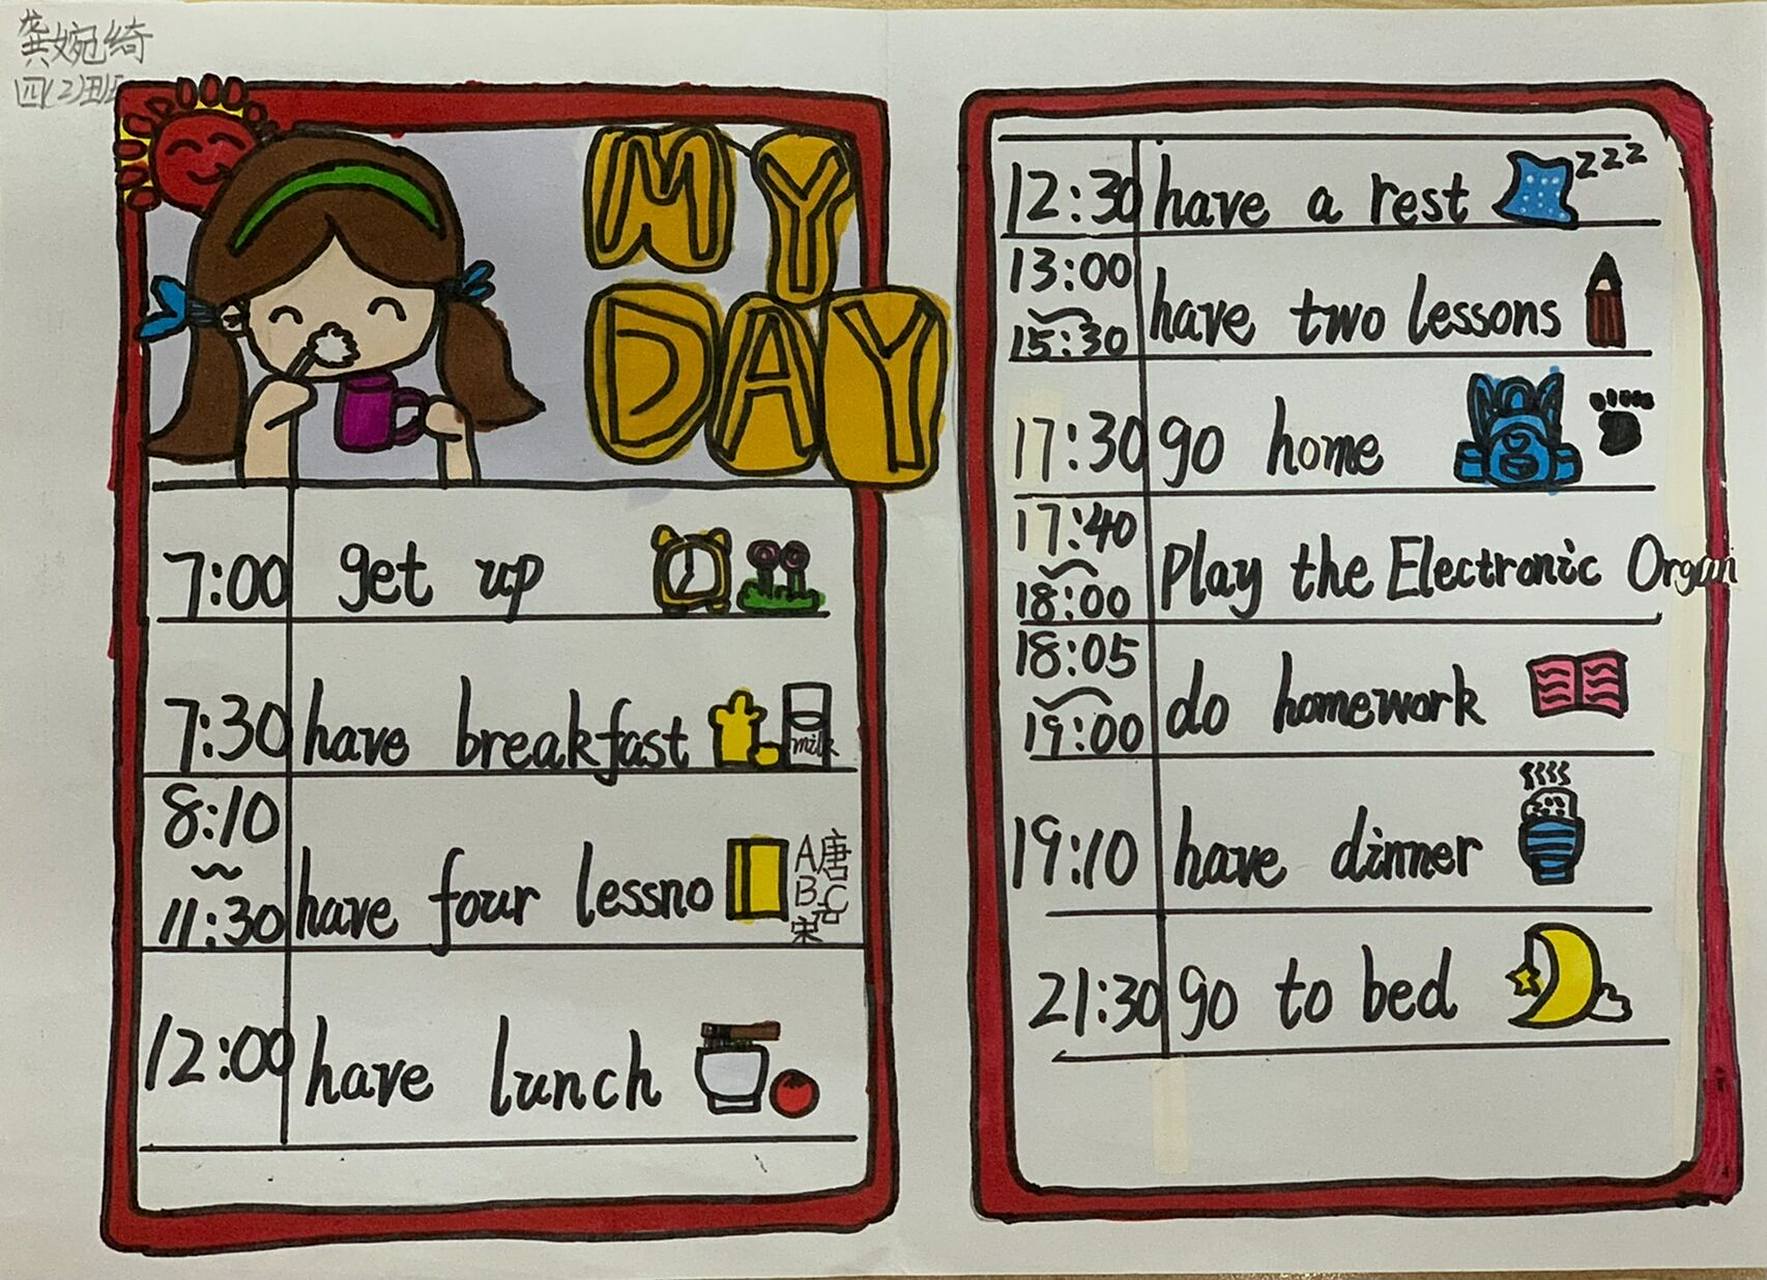 龚婉绮
四(2)班
MY
DAY
7:00 get up
7:30 have breakfast
milk
8:10
~
11:30 have four lessno
A唐
B C
宋元
12:00 have lunch
12:30 have a rest zzz
13:00
~
15:30 have two lessons
17:30 go home
17:40
~
18:00 Play the Electronic Organ
18:05
~
19:00 do homework
19:10 have dinner
21:30 go to bed